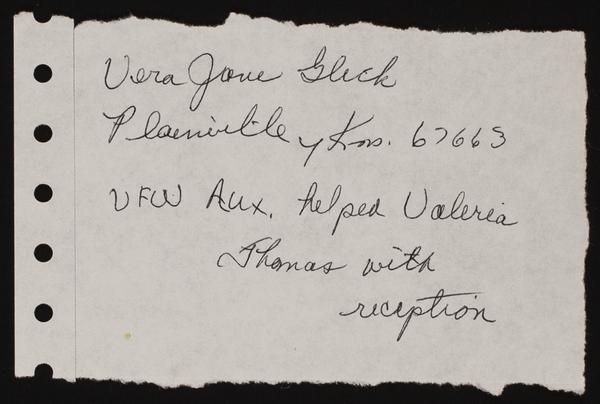 Vera Jane Gleck
Plainville, Kns. 67663
VFW Aux. helped Valeria
Thomas with
reception